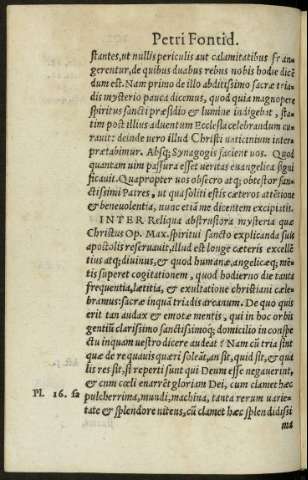 Petri Fontid.
stantes, ut nullis periculis aut calamitatibus fran-
gerentur, de quibus duabus rebus nobis hodie dicẽ
dum est. Nam primo de illo abditissimo sacræ triа-
dis mysterio pauca dicemus, quod quia magnopere
spiritus sancti præsidio & lumine indigebat, sta-
tim post illius aduentum Ecclesia celebrandum cu-
rauit: deinde vero illud Christi vaticinium inter-
prætabimur. Absq; Synagogis facient vos. Quod
quantam vim passura esset veritas euangelica signi
ficauit. Quapropter vos obsecro atq; obtestor san-
ctissimi Patres, ut qua soliti estis cæteros attẽtione
& beneuolentia, nunc etiã me dicentem excipiatis.
INTER Reliqua abstrusiora mysteria quæ
Christus Op. Max. spiritui sancto explicanda suis
apostolis reseruauit, illud est longe cæteris excellẽ
tius atq; diuinius, & quod humanæ, angelicæq; mẽ-
tis superet cogitationem, quod hodierno die tanta
frequentia, lætitia, & exultatione christiani cæle-
bramus: sacræ inquã triadis arcanum. De quo quis
erit tan audax & emotæ mentis, qui in hoc orbis
gentiũ clarissimo sanctissimoq; domicilio in conspe
ctu inquam vestro dicere audeat? Nam cũ tria sint
quæ de re quauis quæri soleãt, an sit, quid sit, & qua
lis res sit, si reperti sunt qui Deum esse negauerint,
& cum cœli enarrẽt gloriam Dei, cum clamet hæc
Pl. 16. sz pulcherrima, mundi, machina, tanta rerum varie-
tate & splendore nitens, cũ clamet hæc splendidissi
ma